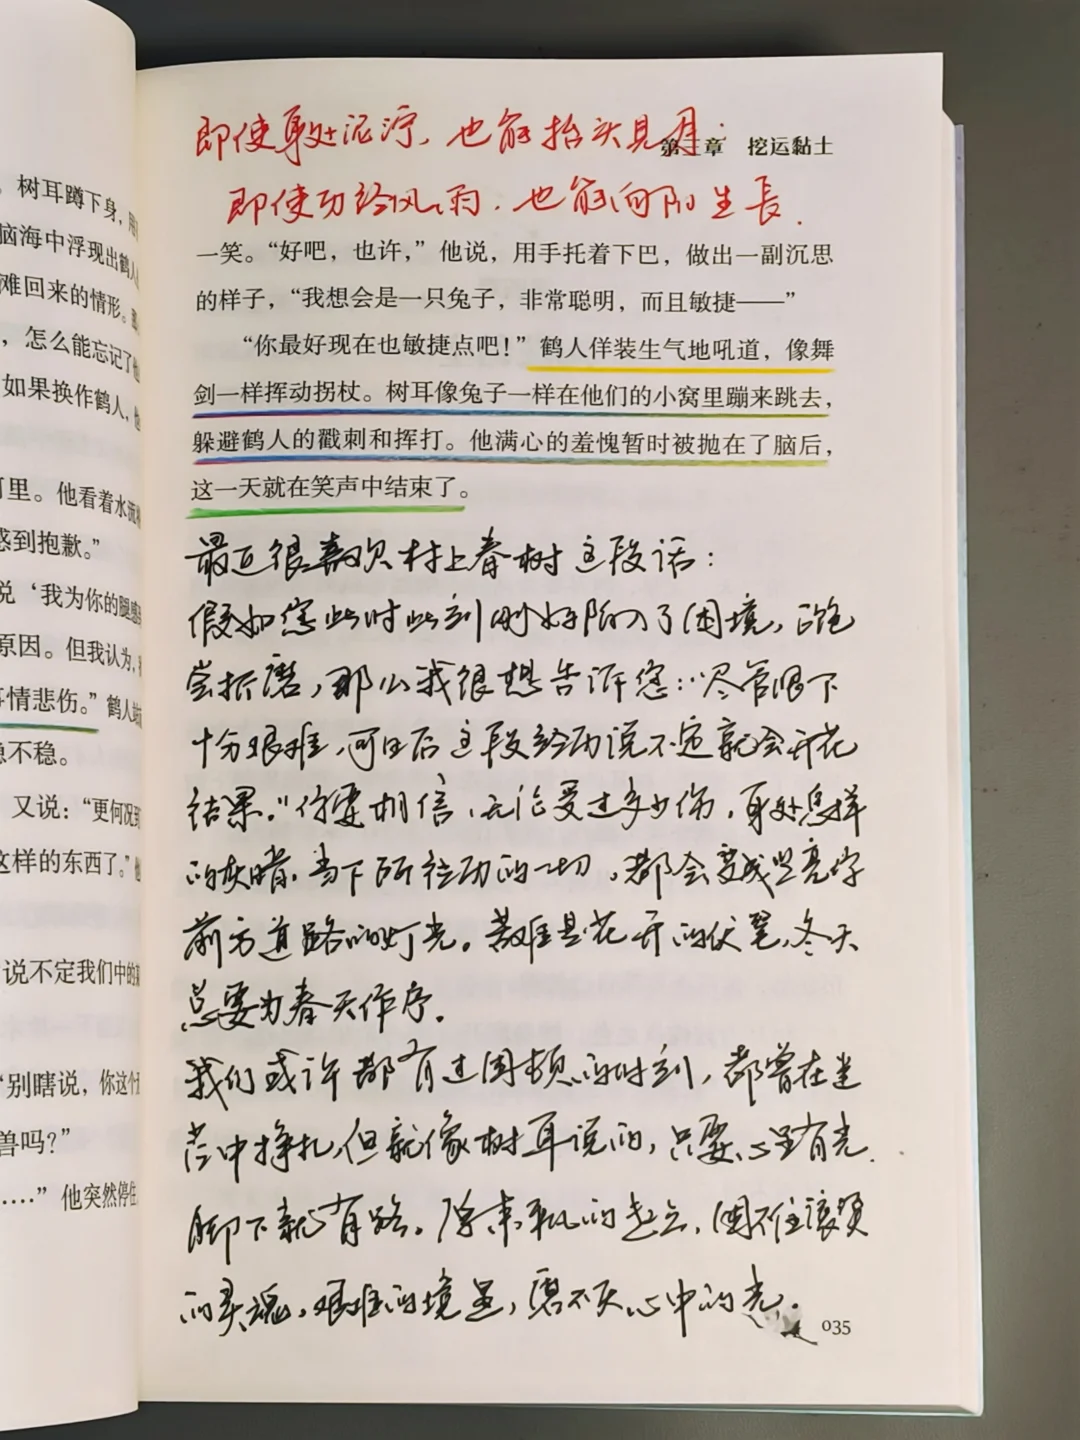 树耳蹲下身，用
脑海中浮现出鹤人
滩回来的情形。
，怎么能忘记了他
如果换作鹤人，他
里。他看着水流
感到抱歉。”
说‘我为你的腿感
原因。但我认为，
事情悲伤。”鹤人站
不稳。
又说：“更何况
这样的东西了。”他
说不定我们中的
“别瞎说，你这个
兽吗？”
……”他突然停住
即使身处泥泞，也能抬头见月.
第二章 挖运黏土
即使历经风雨，也能向阳生長.
一笑。“好吧，也许，”他说，用手托着下巴，做出一副沉思
的样子，“我想会是一只兔子，非常聪明，而且敏捷——”
“你最好现在也敏捷点吧！”鹤人佯装生气地吼道，像舞
剑一样挥动拐杖。树耳像兔子一样在他们的小窝里蹦来跳去，
躲避鹤人的戳刺和挥打。他满心的羞愧暂时被抛在了脑后，
这一天就在笑声中结束了。
最近很喜欢村上春树这段话：
假如您此时此刻刚好陷入了困境，正饱
尝折磨，那么我很想告诉您：“尽管眼下
十分艰难，可日后这段经历说不定就会开花
结果。”你要相信，无论受过多少伤，身处怎样
的灰暗，当下所经历的一切，都会变成照亮你
前方道路的灯光。苦难是花开的伏笔，冬天
总要为春天作序。
我们或许都有过困顿的时刻，都曾在迷
茫中挣扎，但就像树耳说的，只要心里有光，
脚下就有路。原来平凡的起点，困不住滚烫
的灵魂，艰难的境遇，磨不灭心中的光.
035